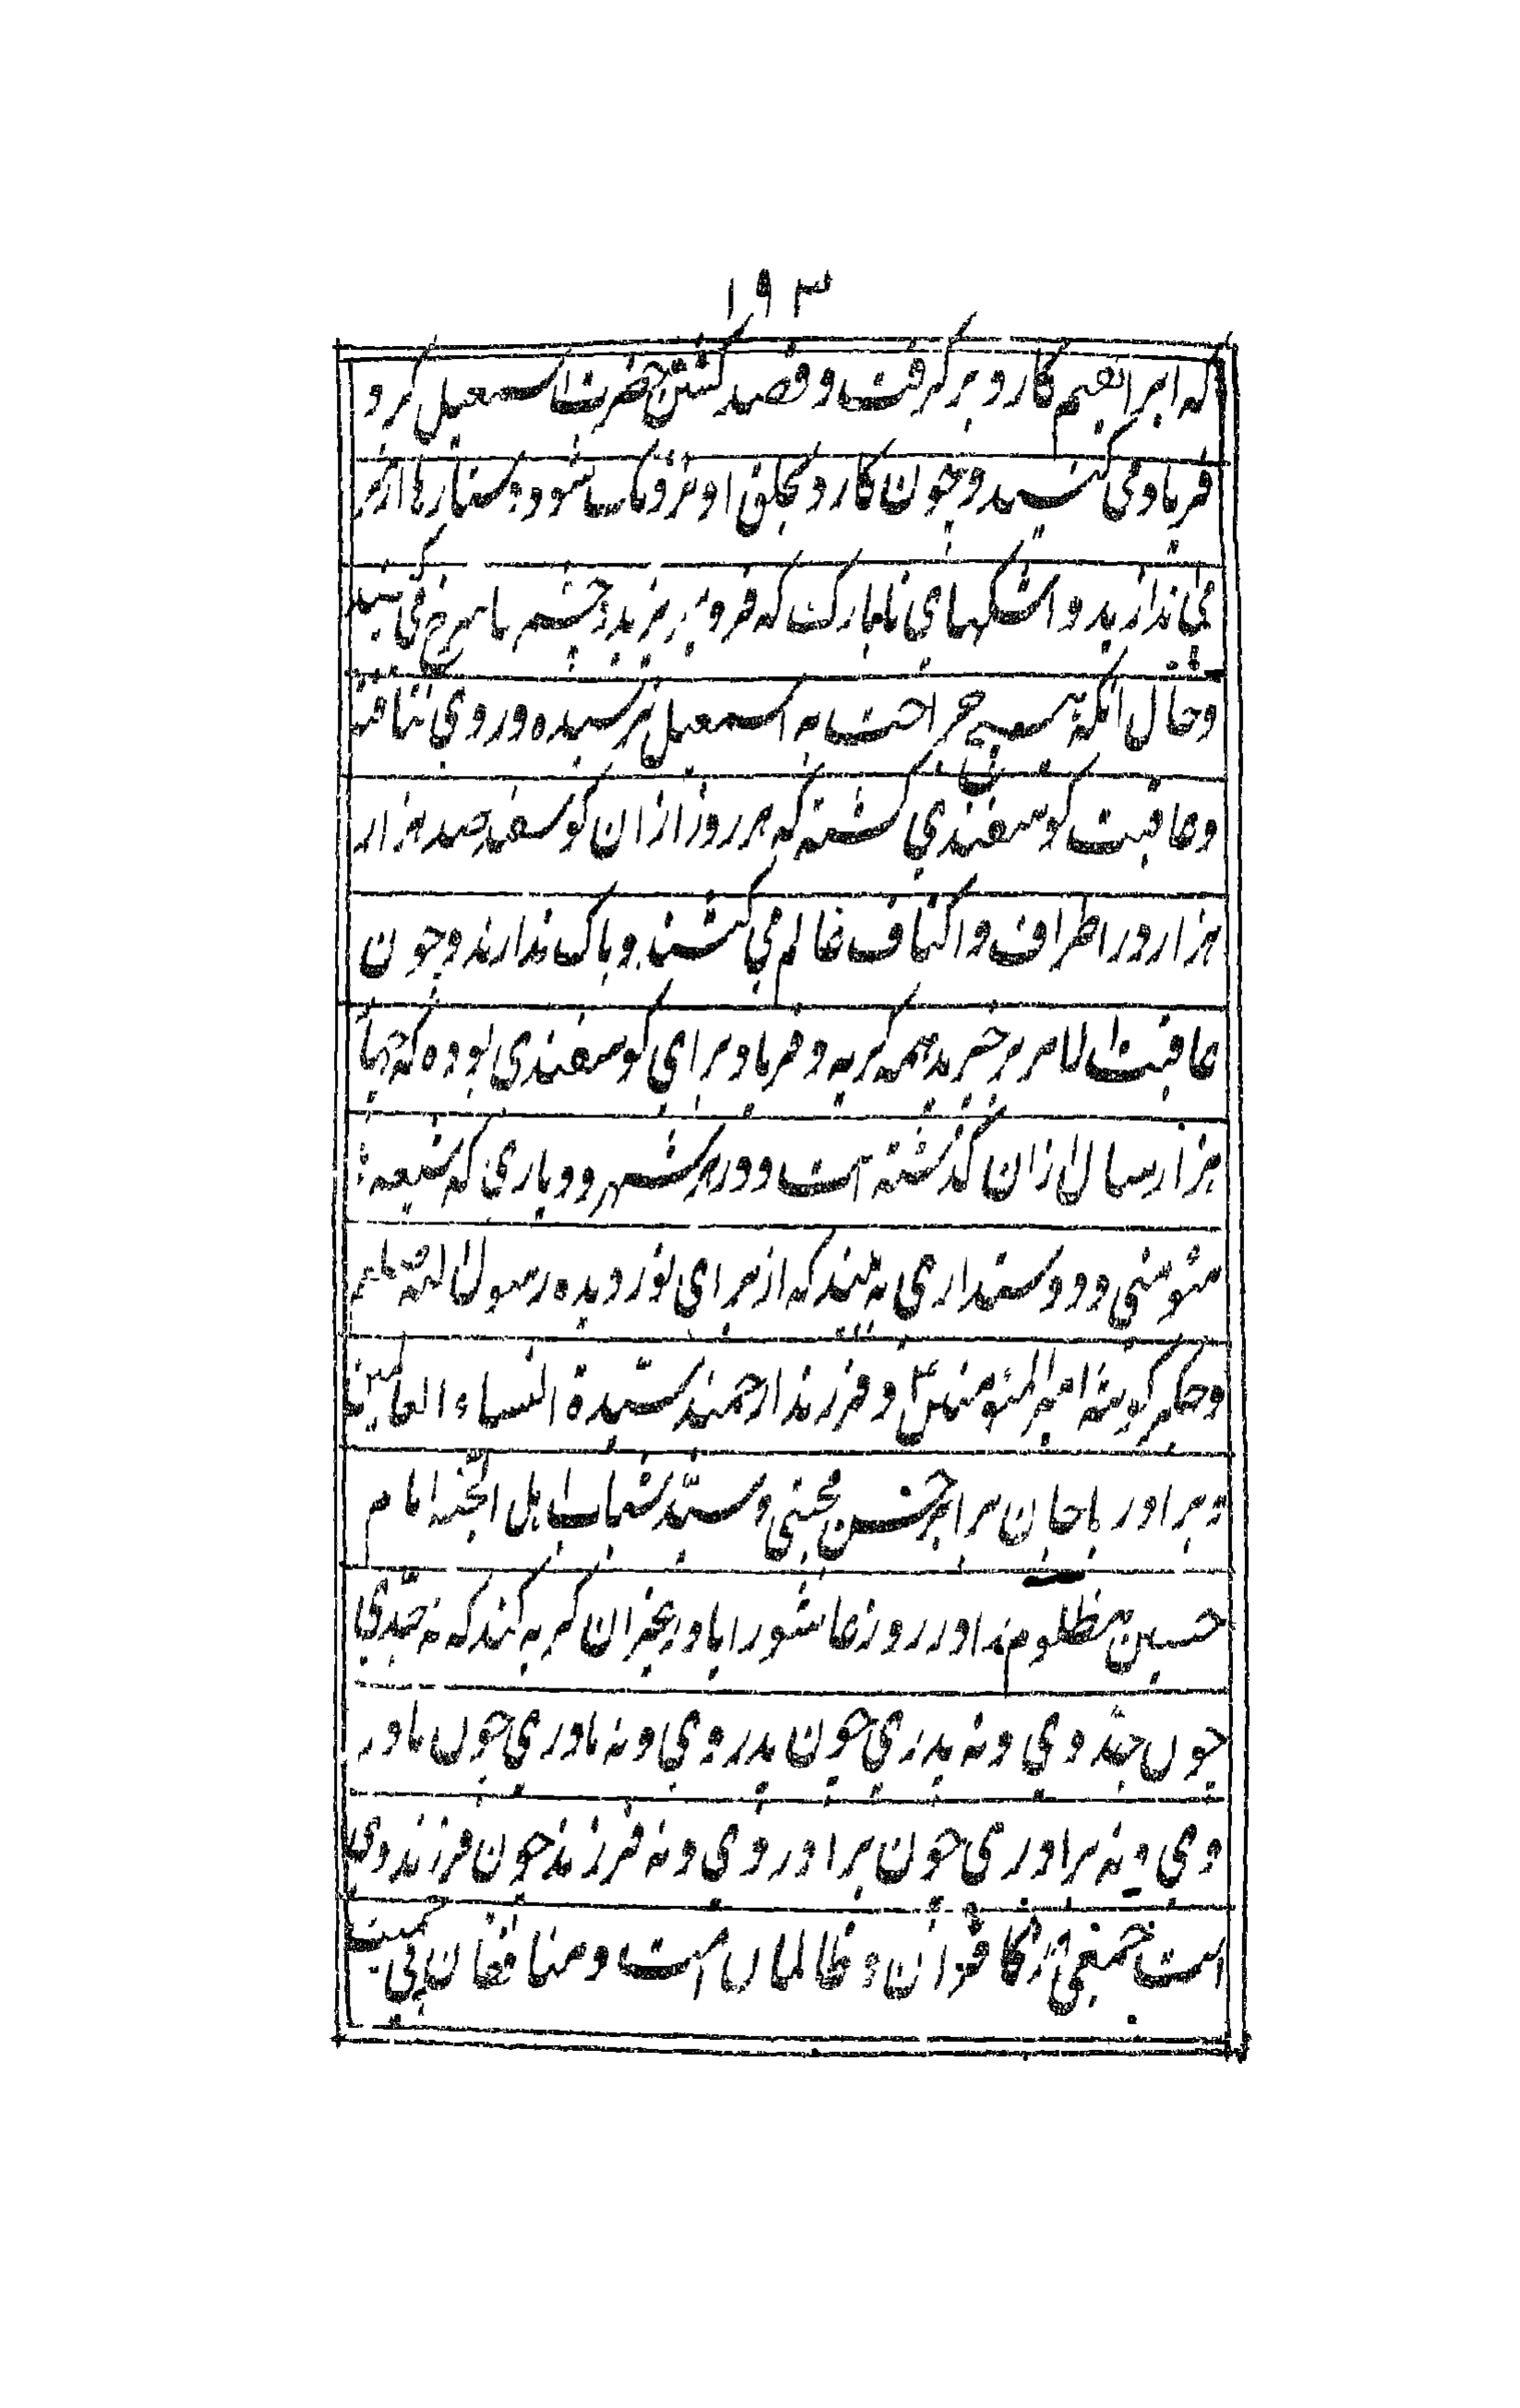 ۱۹۳
که ابراهیم کارد برگرفت و قصد کشتن حضرت اسمعیل کرد
فریاد می کنید و چون کارد بحلق او نزدیک شود دستارها از سر
می اندازید و اشکهای نامبارک که فرو می ریزید و چشم ها سرخ می کنید
و حال آنکه هیچ جراحت به اسمعیل نرسیده و روی نتافته
و عاقبت کوسفندی کشته که هر روز از ان کوسفند صد هزار
هزار در اطراف و اکناف عالم می کشند و باک ندارند و چون
عاقبت الامر برخیزید همه کریه و فریاد برای کوسفندی بوده که چهار
هزار سال ازان گذشته است و در هر شهر و دیاری که شیعه
مئومنی و دوستداری به بینند که از برای نور دیده رسول الله
و جگر گوشه امیر المئومنین و فرزند ارجمند سیّدة النساء العالمین
و برادر باجان برابر حسن مجتبی و سیّد شباب اهل الجنّه امام
حسین مظلوم در روز عاشورا یا در غیر ان کریه کند که نه جدّی
چون جدّ وی و نه پدری چون پدر وی و نه مادری چون مادر
وی و نه برادری چون برادر وی و نه فرزند چون فرزند وی
است جمعی از کافران و ظالمان است و منافقان بی